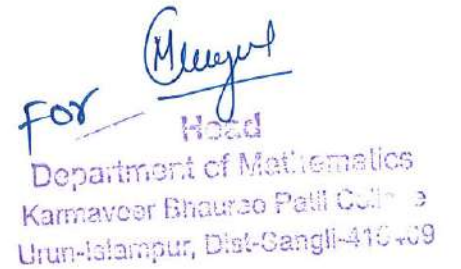 For
Head
Department of Mathematics
Karmaveer Bhaurao Patil College
Urun-Islampur, Dist-Sangli-415409